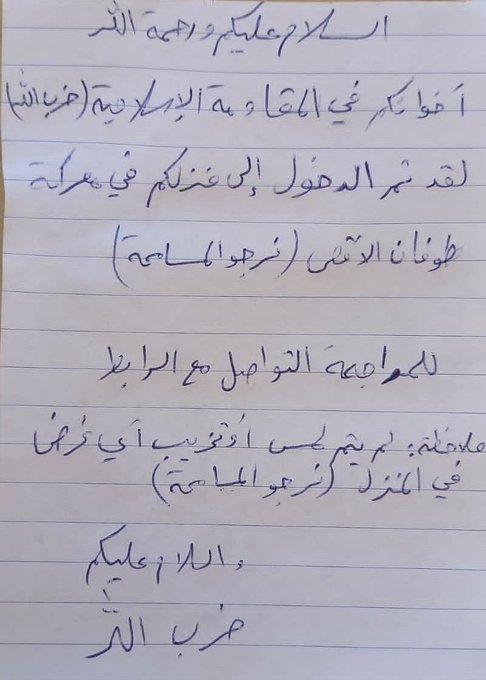 السلام عليكم ورحمة الله
أخوانكم في المقاومة الإسلامية (حزب الله)
لقد تم الدخول إلى منزلكم في معركة
طوفان الأقصى (نرجو المسامحة)
للمراجعة التواصل مع الرابط
ملاحظة: لم يتم لمس أو تخريب أي غرض
في المنزل (نرجو المسامحة)
والسلام عليكم
حزب الله